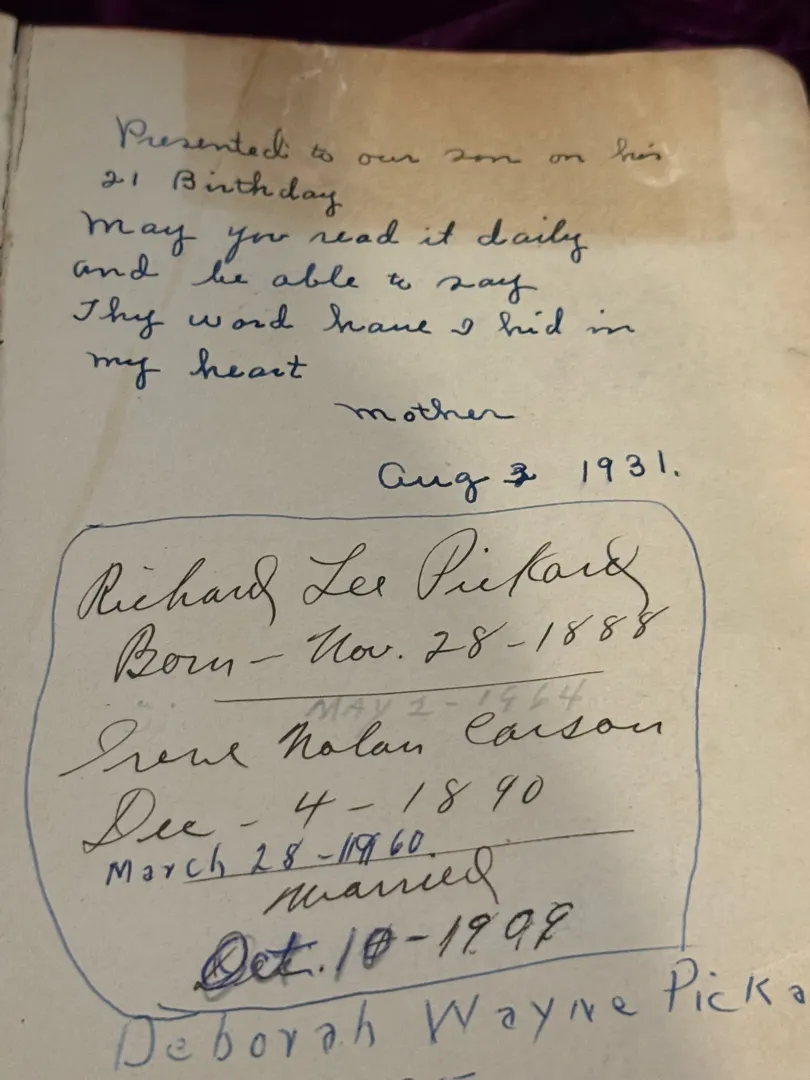 Presented to our son on his
21 Birthday
May you read it daily
and be able to say
Thy word have I hid in
my heart
Mother
Aug 3 1931.
Richard Lee Pickard
Born – Nov. 28 – 1888
MAY 1 – 1964
Irene Nolan Carson
Dec – 4 – 1890
March 28 – 1960.
Married
Oct. 10 – 1909
Deborah Wayne Picka